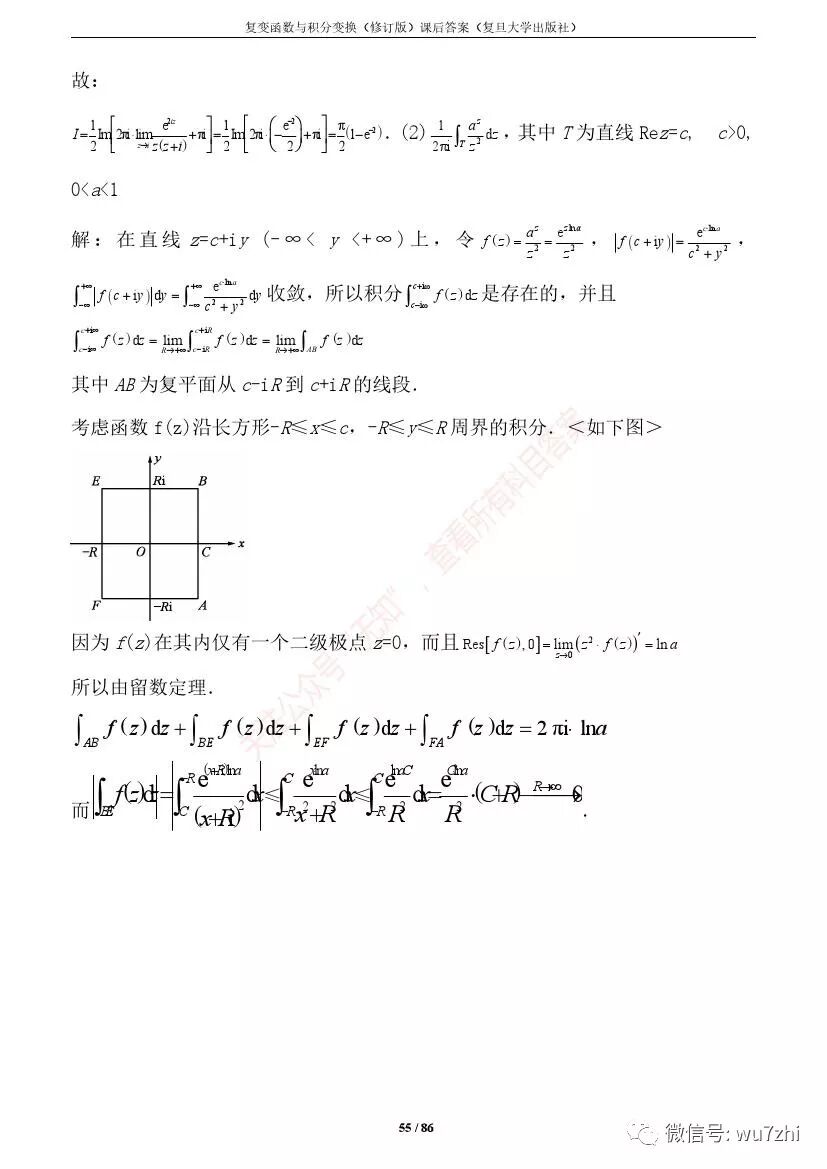 复变函数与积分变换（修订版）课后答案（复旦大学出版社）
故：
I=1/2 Im[2πi·lim_{z→i} e^{2iz}/(z(z+i))+πi]=1/2 Im[2πi·(-e^{-2}/2)+πi]=π/2(1-e^{-2}). (2) 1/(2πi) ∫_T a^z/z^2 dz，其中 T 为直线 Rez=c, c>0,
0<a<1
解：在直线 z=c+iy (-∞< y <+∞)上，令 f(z)=a^z/z^2=e^{zlna}/z^2，|f(c+iy)|=e^{c·lna}/(c^2+y^2)，
∫_{-∞}^{+∞}|f(c+iy)|dy=∫_{-∞}^{+∞} e^{c·lna}/(c^2+y^2) dy 收敛，所以积分∫_{c-i∞}^{c+i∞} f(z)dz 是存在的，并且
∫_{c-i∞}^{c+i∞} f(z)dz=lim_{R→+∞}∫_{c-iR}^{c+iR} f(z)dz=lim_{R→+∞}∫_{AB} f(z)dz
其中 AB 为复平面从 c-iR 到 c+iR 的线段.
考虑函数 f(z)沿长方形-R≤x≤c，-R≤y≤R 周界的积分.＜如下图＞
y
E Ri B
x
-R O C
F -Ri A
因为 f(z)在其内仅有一个二级极点 z=0，而且 Res[f(z),0]=lim_{z→0}(z^2·f(z))′=lna
所以由留数定理.
∫_{AB} f(z)dz+∫_{BE} f(z)dz+∫_{EF} f(z)dz+∫_{FA} f(z)dz=2πi·lna
而|∫_{BE} f(z)dz|=|∫_C^{-R} e^{(x+Ri)lna}/(x+Ri)^2 dx|≤∫_{-R}^C e^{xlna}/(x^2+R^2) dx≤∫_{-R}^C e^{lnaC}/R^2 dx=e^{Clna}/R^2·(C+R)
R→∞
.
关注公众号"无知"，查看所有科目答案
55 / 86
微信号: wu7zhi